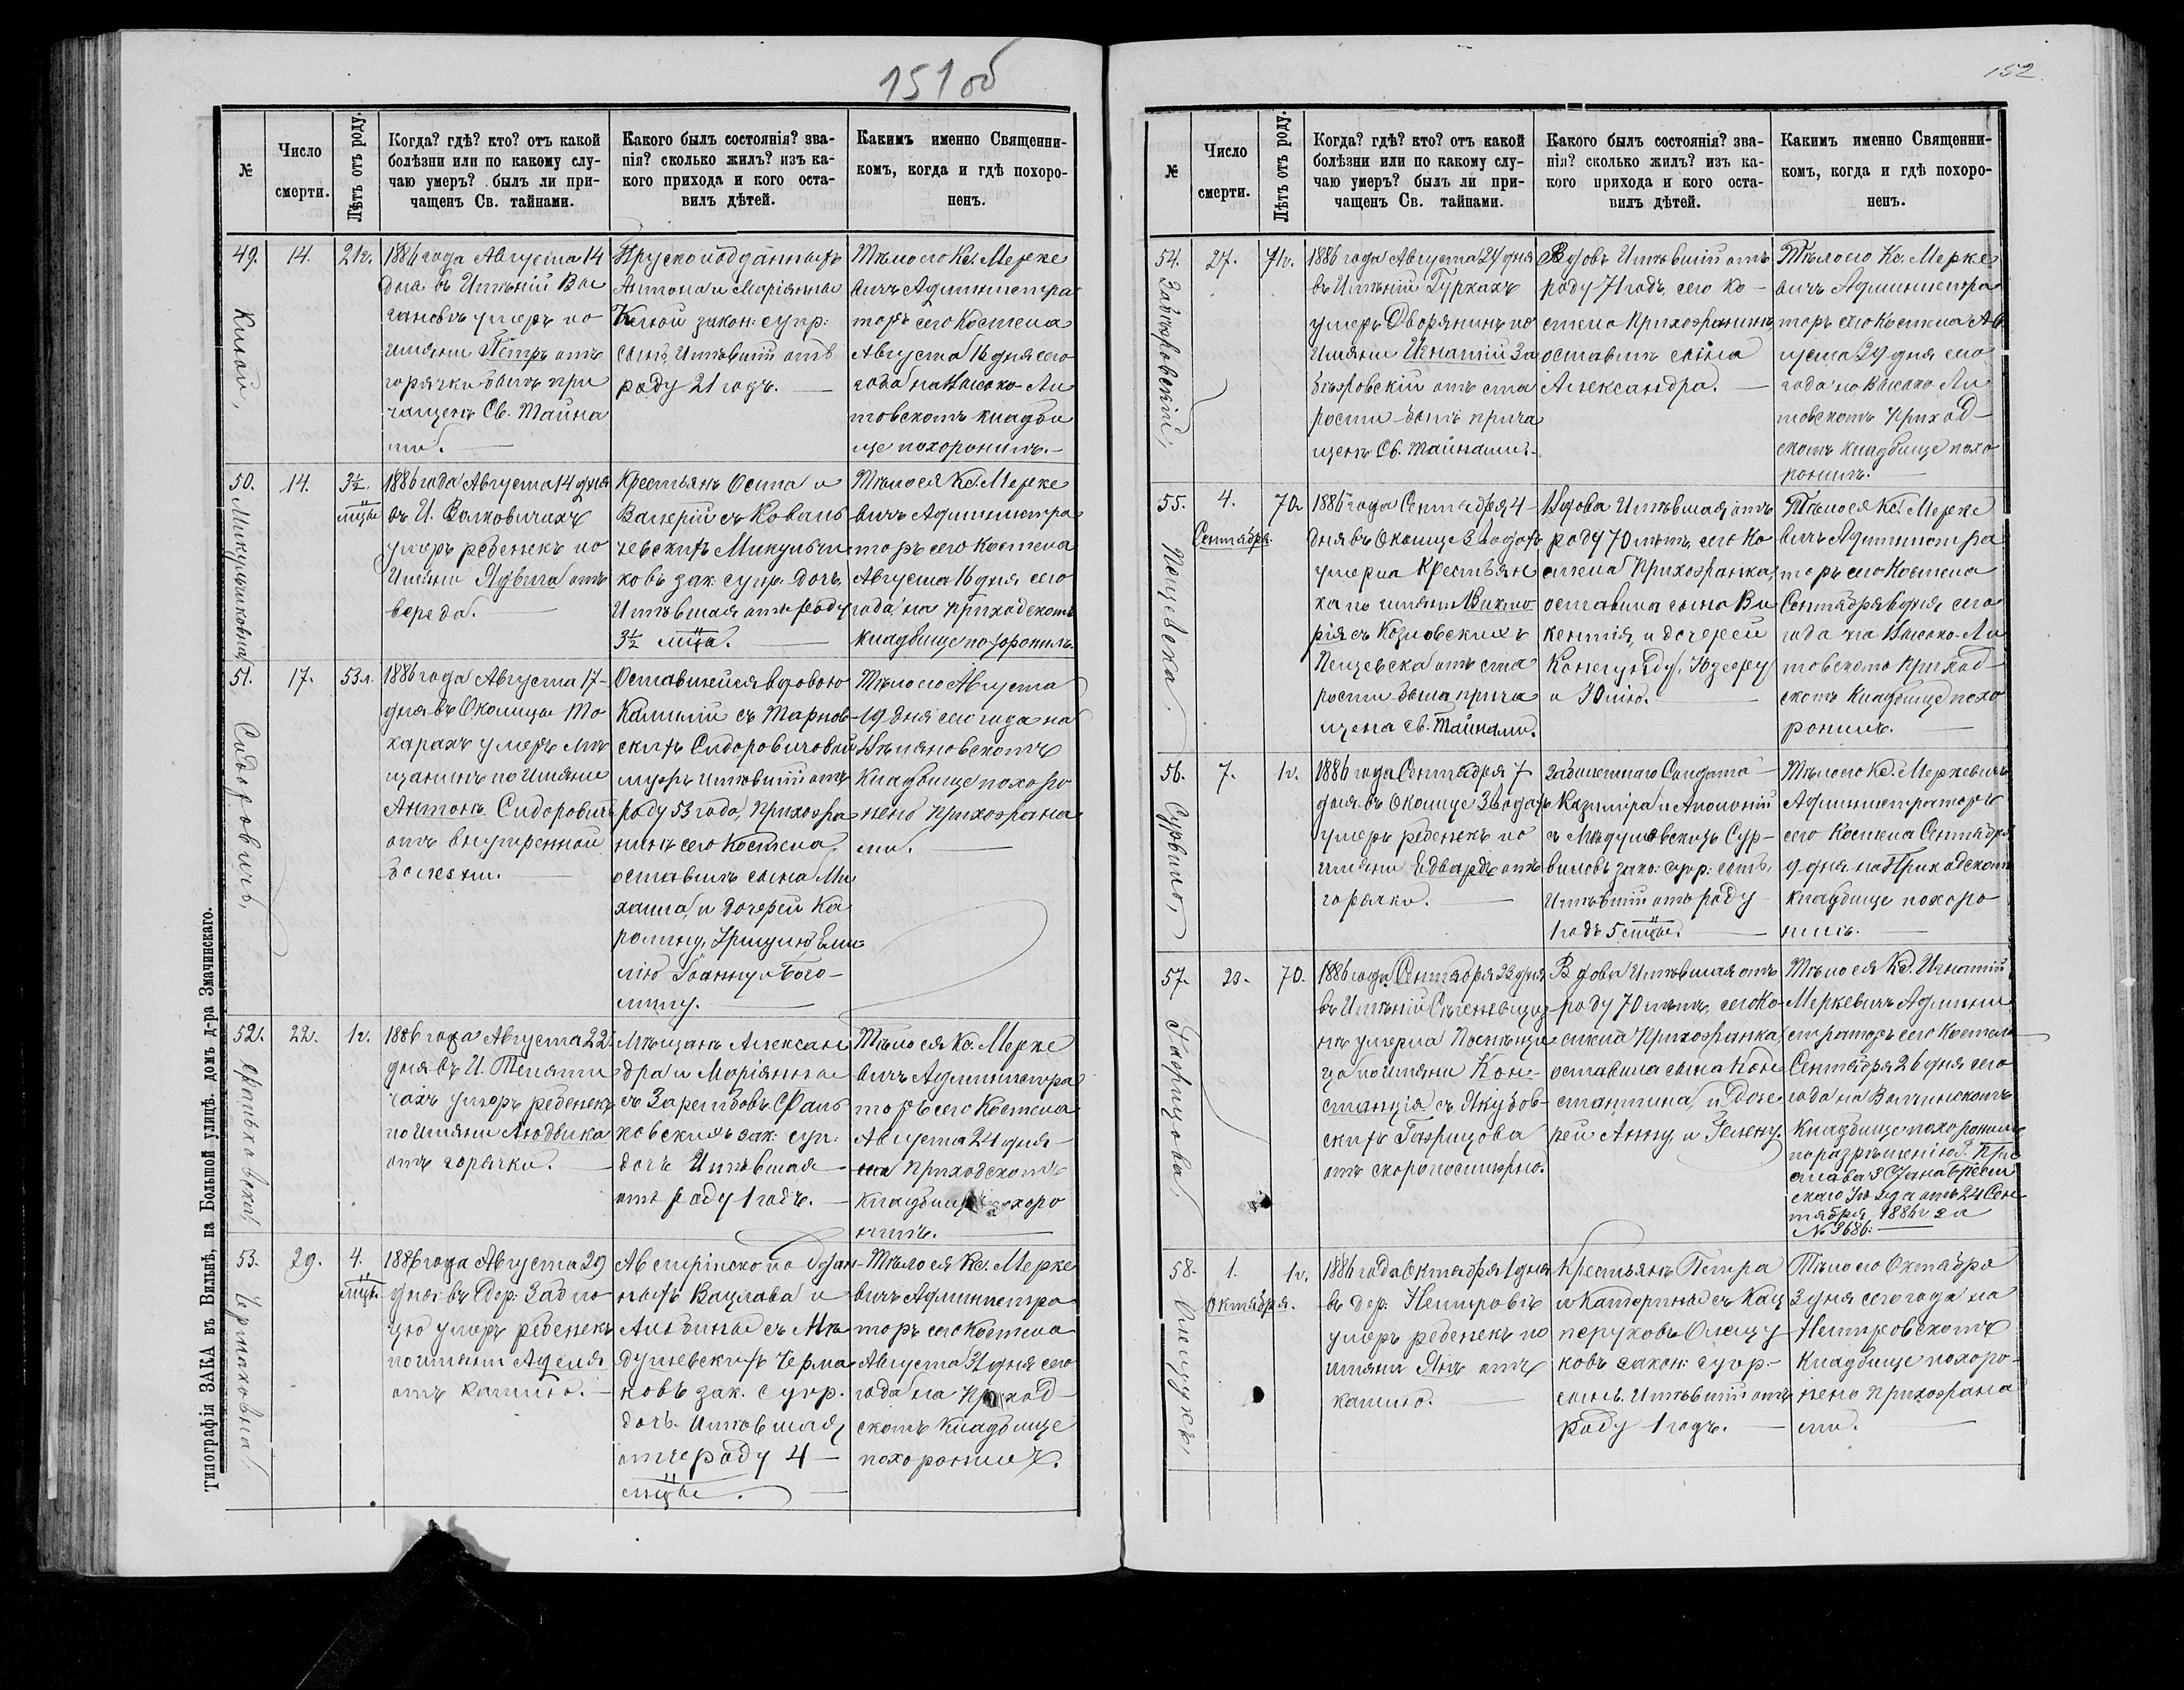 151 об
№
Число
смерти.
Лѣтъ отъ роду.
Когда? гдѣ? кто? отъ какой
болѣзни или по какому слу-
чаю умеръ? былъ ли при-
чащенъ Св. тайнами.
Какого былъ состоянія? зва-
нія? сколько жилъ? изъ ка-
кого прихода и кого оста-
вилъ дѣтей.
Какимъ именно Священни-
комъ, когда и гдѣ похоро-
ненъ.
49.
14.
21г.
1886 года Августа 14
дня въ Имѣніи
умеръ по
имяни Петръ отъ
горячки былъ при
чащенъ Св. Тайна
ми.
Антона и Маріянны
закон: супр:
сынъ, Имѣвшій отъ
роду 21 годъ.
Тѣло его Кс. Мерке
вичъ Администра
торъ сего Костела
Августа 16 дня сего
года на Высоко-Ли
товскомъ кладби
ще похоронилъ.
50.
Микульчиковна
14.
3½
мцы
1886 года Августа 14 дня
въ И. Волковичахъ
умеръ ребенекъ по
Имяни Ядвига отъ
вереда.
Крестьянъ Осипа и
Валеріи съ Коваль
чевскихъ Микульчи
ковъ зак. супр. дочь,
Имѣвшая отъ роду
3½ мца.
Тѣло ея Кс. Мерке
вичъ Администра
торъ сего Костела
Августа 16 дня сего
года на приходскомъ
кладбище похоронилъ.
51.
Сидоровичъ,
17.
53л.
1886 года Августа 17-
дня въ Околицы То
карахъ умеръ мѣ
щанинъ по Имяни
Антонъ Сидоровичъ
отъ внутренной
болезни.
Оставшейся вдовою
Камилii съ Тарнов-
скихъ Сидоровичовой
мужъ имѣвшій отъ
роду 53 года, Прихожа
нинъ сего Костела,
оставилъ сына Ми
хаила, и дочерей Ка
ролину, Уршулю Еми
лію Іоанну и Бого-
милу.
Тѣло его Августа
19 дня сего года на
кладбище похоро
нено Прихожана
ми.
52.
Фальковска,
22.
1г.
1886 года Августа 22
дня въ И.
умеръ ребенекъ
по Имяни Людвика
отъ горячки.
Мѣщанъ Алексан
дра и Маріянны
съ Зарембовъ Фаль
ковскихъ зак: суп:
дочь Имѣвшая
отъ роду 1 годъ.
Тѣло ея Кс. Мерке
вичъ Администра
торъ сего Костела
Августа 24 дня
на Приходскомъ
кладбище похоро
нилъ.
53.
Чермаковна
29.
4.
мцы
1886 года Августа 29
дня въ Дер:
умеръ ребенекъ
по имяни Аделя
отъ кашлю.
Австрійско поддан-
ныхъ Вацлава и
Альбины съ Мѣ
душевскихъ Черма
ковъ зак. супр.
дочь. Имѣвшая
отъ роду 4
мцы.
Тѣло ея Кс. Мерке
вичъ Администра
торъ сего Костела
Августа 31 дня сего
года на приход-
скомъ кладбище
похоронилъ.
Типографія ЗАКА въ Вильнѣ, на Большой улицѣ. домъ д-ра Змачинскаго.
152.
№
Число
смерти.
Лѣтъ отъ роду.
Когда? гдѣ? кто? отъ какой
болѣзни или по какому слу-
чаю умеръ? былъ ли при-
чащенъ Св. тайнами.
Какого былъ состоянія? зва-
нія? сколько жилъ? изъ ка-
кого прихода и кого оста-
вилъ дѣтей.
Какимъ именно Священни-
комъ, когда и гдѣ похоро-
ненъ.
54.
27.
71г.
1886 года Августа 27 дня
въ Имѣніи Гуркахъ
умеръ Дворянинъ по
Имяни Игнатій За
отъ ста
рости былъ прича
щенъ Св. Тайнами.
Вдовъ Имѣвшій отъ
роду 71 годъ, сего Ко-
стела Прихожанинъ
оставилъ сына
Александра.
Тѣло его Кс. Мерке
вичъ Администра
торъ сего Костела Ав
густа 29 дня сего
года на Высоко Ли
товскомъ Приход-
скомъ кладбище похо
ронилъ.
55.
Пещевска.
4.
Сентября.
70
1886 года Сентября 4-
дня въ Околице Зводахъ
умерла Крестьян
ка по имяни Викто
рія съ Козловскихъ
Пещевска отъ ста
рости была прича
щена Св. Тайнами.
Вдова Имѣвшая отъ
роду 70 лѣтъ, сего Ко
стела Прихожанка,
оставила сына Ви
кентія, и дочерей
Конегунду, Юзефу
и Юлію.
Тѣло ея Кс. Мерке
вичъ Администра
торъ сего Костела
Сентября 6 дня сего
года на Высоко-Ли
товскомъ Приход-
скомъ кладбище похо
ронилъ.
56.
Сурвило,
7.
1г.
1886 года Сентября 7
дня въ Околице Зводахъ
умеръ ребенекъ по
имяни Едвардъ отъ
горячки.
Солдата
Казиміра и Аполоніи
съ Мѣдушевскихъ Сур-
виловъ зако: супр: сынъ,
Имѣвшій отъ роду
1 годъ 5 мцы.
Тѣло его Кс. Меркевичъ
Администраторъ
сего Костела Сентября
9 дня на Приходскомъ
кладбище похоро
нилъ.
57.
23.
70.
1886 года Сентября 23 дня
въ Имѣніи
умерла
по имяни Кон-
станція съ Якубов-
скихъ
отъ скоропостижно.
Вдова Имѣвшая отъ
роду 70 лѣтъ, сего Ко-
стела Прихожанка,
оставила сына Кон
стантина, и Доче
рей Анну, и Гелену.
Тѣло ея Кс. Игнатій
Меркевичъ Админи
страторъ сего Костела
Сентября 26 дня сего
года на Волчинскомъ
кладбище похоронилъ
по разрѣшенію Г. При
става 3 Стана Брест
скаго Уѣзда отъ 24 Сен
тября 1886 г. за
№ 3686.
58.
1.
Октября.
1г.
1886 года Октября 1 дня
въ дер:
умеръ ребенекъ по
имяни Янъ отъ
кашлю.
Крестьянъ Петра
и Катерины съ Кац
перуковъ
ковъ закон: супр-
сынъ. Имѣвшій отъ
роду 1 годъ.
Тѣло его Октября
3 дня сего года на
кладбище похоро-
нено прихожана
ми.